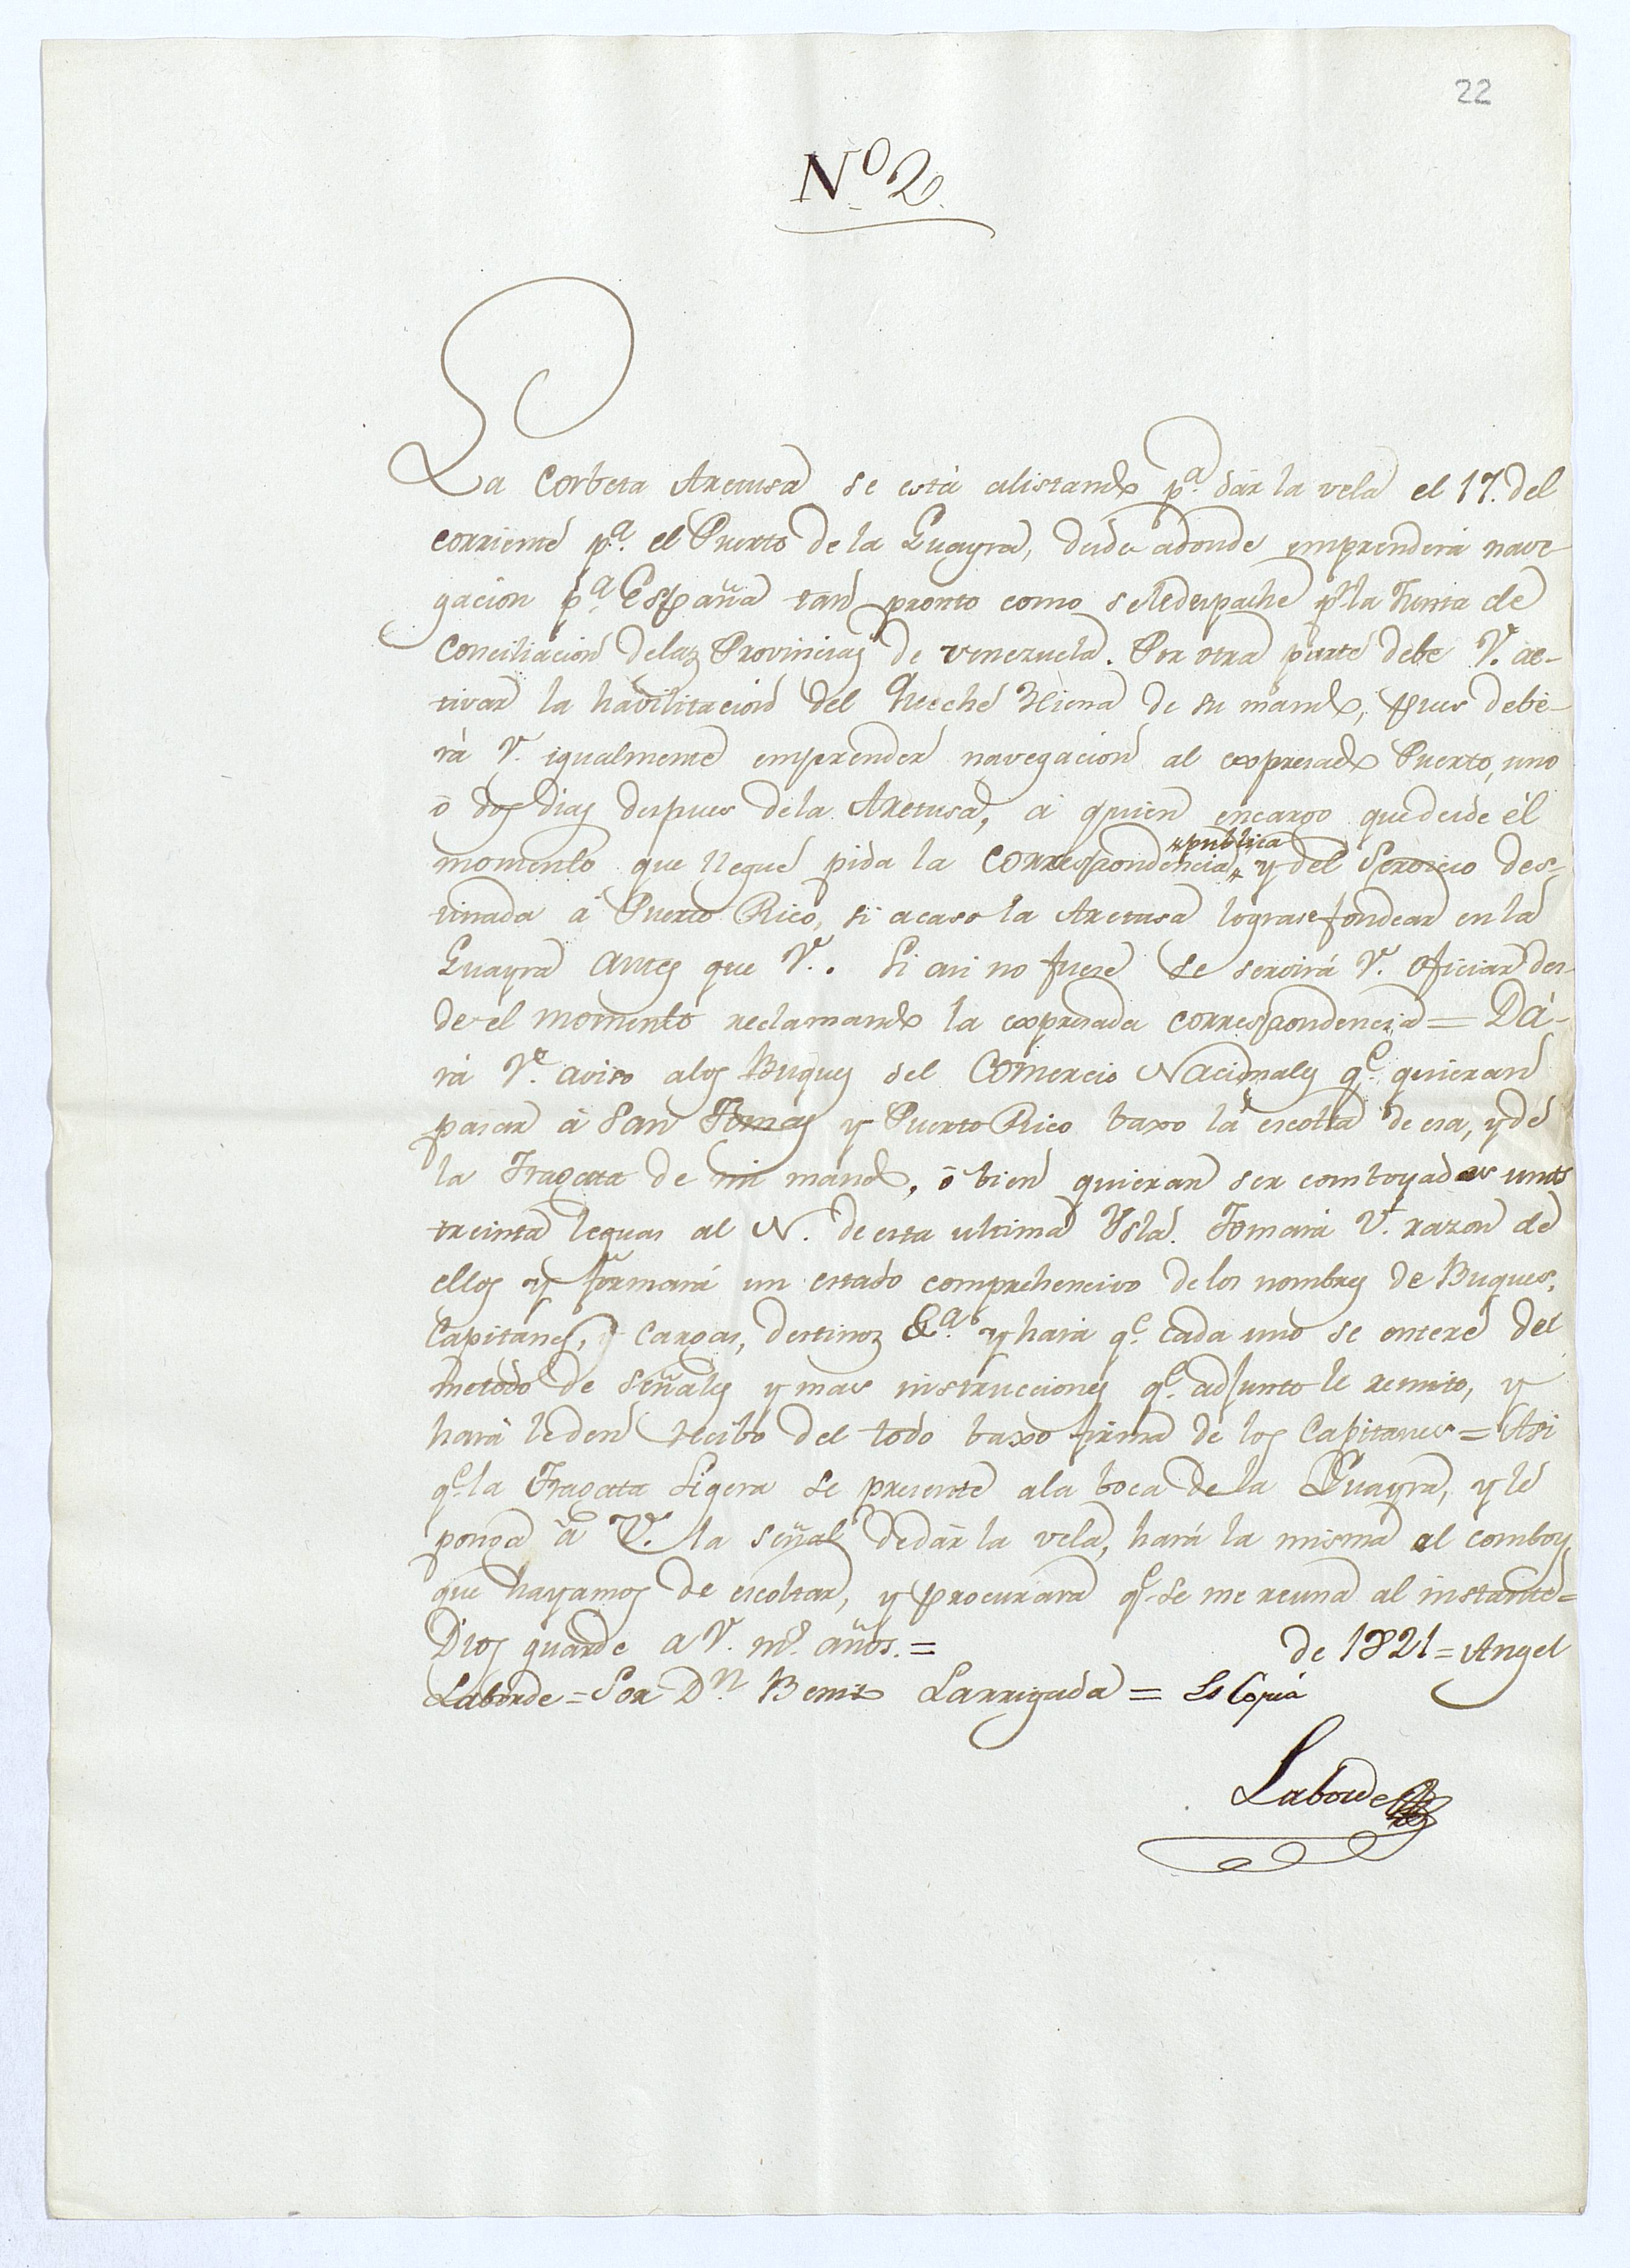 22
Nº 2.
La Corbeta Aretusa se está alistando pª. dár la vela el 17. del
corriente pª. el Puerto de la Guayra, desde adonde emprenderá nave-
gacion pª. España tan pronto como se le despache pr. la Junta de
Conciliacion delas Provincias de Venezuela. Por otra parte debe V. ac-
tivar la havilitacion del Queche Hiena de su mando, pues debe-
rá V. igualmente emprender navegacion al expresado Puerto, uno
ó dos dias despues dela Aretusa, á quien encargo que desde él
momento que llegue pida la correspondencia " y del Servicio des-
"publica
tinada á Puerto Rico, si acaso la Aretusa lograse fondear en la
Guayra antes que V.. Si asi no fuere se servirá V. oficiar des-
de el momento reclamando la expresada correspondencia = Da-
rá V. aviso alos Buques del Comercio Nacionales qe. quieran
pasar á San Tomas y Puerto Rico baxo la escolta de esa, y de
la Fragata de mi mando, ó bien quieran ser comboyados unas
treinta leguas al N. de esta ultima Ysla. Tomará V. razon de
ellos y formará un estado comprehencivo delos nombres de Buques,
Capitanes, y Cargas, destinos &ª. y hará qe. cada uno se entere del
metodo de señales y mas instrucciones qe. adjunto le remito, y
hará le den recibo del todo baxo firma de los Capitanes = Asi
qe. la Fragata Ligera se presente ala boca de la Guayra, y le
ponga á V. la señal de dár la vela, hará la misma al comboy
que hayamos de escoltar, y procurará qe. se me reuna al instante =
Dios guarde a V. ms. años. = de 1821 = Angel
Laborde = Sor Dn. Benito Larrigada = Es Copia
Laborde